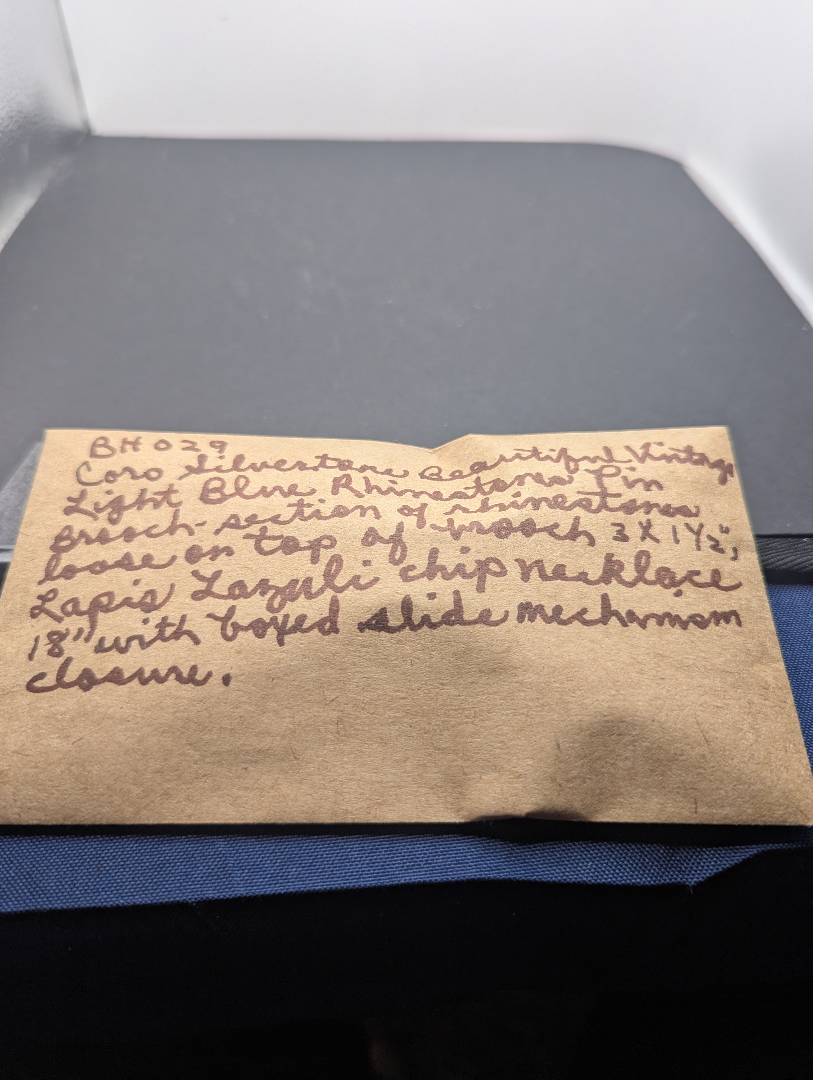 BH029
Coro Silvertone Beautiful Vintage
Light Blue Rhinestone Pin
Brooch - section of rhinestones
loose on top of brooch 3 X 1 1/2",
Lapis Lazuli chip necklace
18" with boxed slide mechanism
closure.